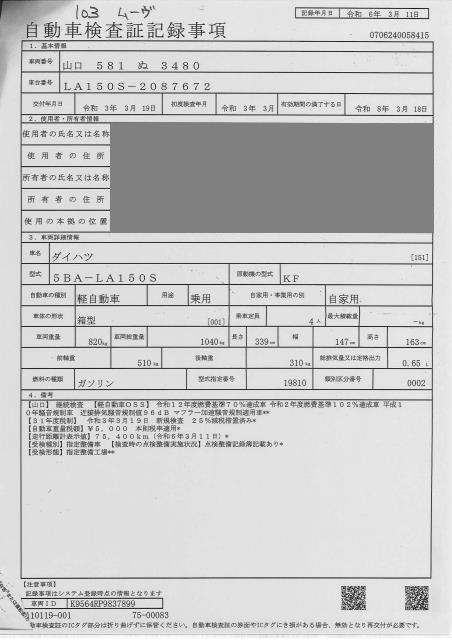 103 ムーヴ
記録年月日 令和 6年 3月 11日
自動車検査証記録事項
0706240058415
1. 基本情報
車両番号 山口 581 ぬ 3480
車台番号 LA150S-2087672
交付年月日 令和 3年 3月 19日 初度検査年月 令和 3年 3月 有効期間の満了する日 令和 8年 3月 18日
2. 使用者・所有者情報
使用者の氏名又は名称
使用者の住所
所有者の氏名又は名称
所有者の住所
使用の本拠の位置
3. 車両詳細情報
車名 ダイハツ [151]
型式 5BA-LA150S 原動機の型式 KF
自動車の種別 軽自動車 用途 乗用 自家用・事業用の別 自家用
車体の形状 箱型 [001] 乗車定員 4人 最大積載量 -kg
車両重量 820kg 車両総重量 1040kg 長さ 339cm 幅 147cm 高さ 163cm
前軸重 510kg 後軸重 310kg 総排気量又は定格出力 0.65 L
燃料の種類 ガソリン 型式指定番号 19810 類別区分番号 0002
4. 備考
【山口】 継続検査 【軽自動車OSS】 令和12年度燃費基準70%達成車 令和2年度燃費基準102%達成車 平成1
0年騒音規制車 近接排気騒音規制値96dB マフラー加速騒音規制適用車**
【31年度税制】 令和3年3月19日 新規検査 25%減税措置済み*
【自動車重量税額】¥5,000 本則税率適用*
【走行距離計表示値】75,400km(令和6年3月11日)*
【受検種別】指定整備車 【検査時の点検整備実施状況】点検整備記録簿記載あり*
【受検形態】指定整備工場**
【注意事項】
記録事項はシステム登録時点の情報となります
車両ID K9564RP9837899
110119-001 75-00083
動車検査証のICタグ部分は折り曲げずに保管ください。自動車検査証の券面やICタグにき損がある場合、無効となり再交付が必要です。